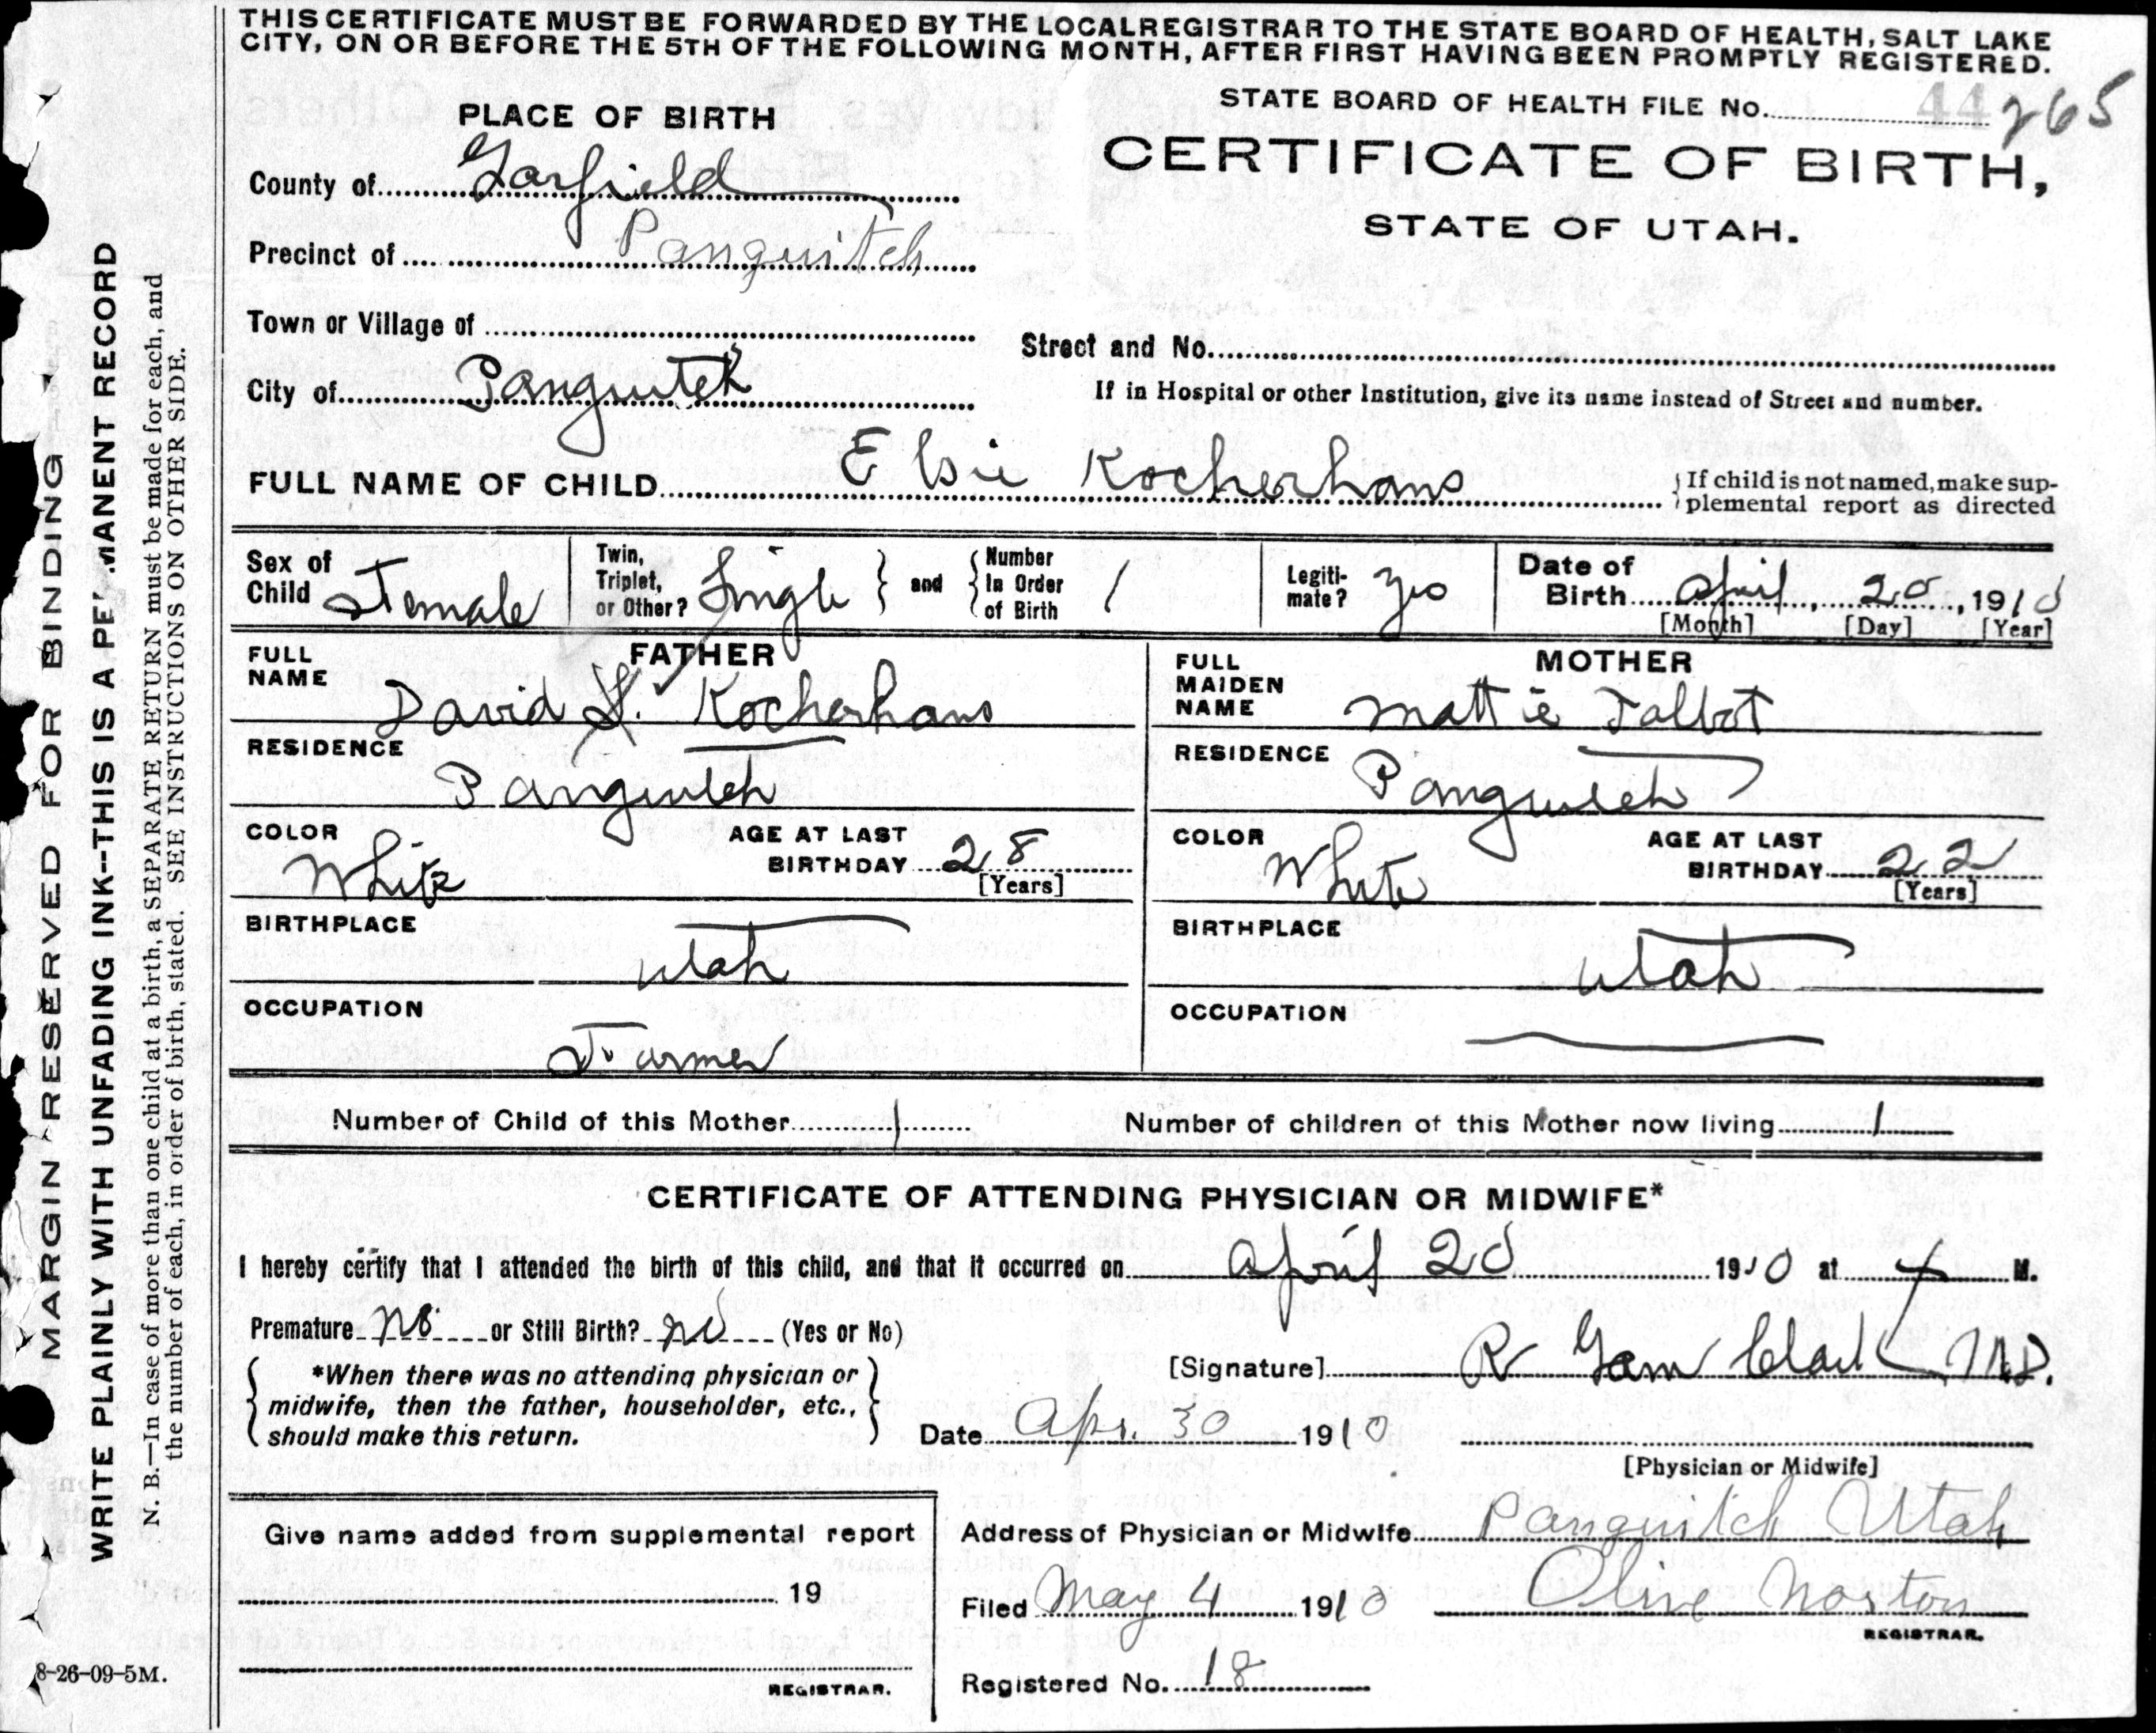 THIS CERTIFICATE MUST BE FORWARDED BY THE LOCAL REGISTRAR TO THE STATE BOARD OF HEALTH, SALT LAKE
CITY, ON OR BEFORE THE 5TH OF THE FOLLOWING MONTH, AFTER FIRST HAVING BEEN PROMPTLY REGISTERED.
STATE BOARD OF HEALTH FILE No. 44 265
PLACE OF BIRTH
CERTIFICATE OF BIRTH,
STATE OF UTAH.
County of Garfield
Precinct of Panguitch
Town or Village of
Street and No.
City of Panguitch
If in Hospital or other Institution, give its name instead of Street and number.
FULL NAME OF CHILD Elsie Kocherhans
If child is not named, make sup-
plemental report as directed
Sex of Child Female
Twin, Triplet, or Other? Single
and Number In Order of Birth 1
Legiti-mate? Yes
Date of Birth April, 20, 1910
[Month] [Day] [Year]
FATHER
FULL NAME David S. Kocherhans
RESIDENCE Panguitch
COLOR White
AGE AT LAST BIRTHDAY 28
[Years]
BIRTHPLACE Utah
OCCUPATION Farmer
MOTHER
FULL MAIDEN NAME Mattie Talbot
RESIDENCE Panguitch
COLOR White
AGE AT LAST BIRTHDAY 22
[Years]
BIRTHPLACE Utah
OCCUPATION
Number of Child of this Mother 1
Number of children of this Mother now living 1
CERTIFICATE OF ATTENDING PHYSICIAN OR MIDWIFE*
I hereby certify that I attended the birth of this child, and that it occurred on April 20 1910 at M.
Premature no or Still Birth? no (Yes or No)
*When there was no attending physician or
midwife, then the father, householder, etc.,
should make this return.
[Signature] R Garn Clark M.D.
Date Apr. 30 1910
[Physician or Midwife]
Give name added from supplemental report
19
REGISTRAR.
Address of Physician or Midwife Panguitch Utah
Filed May 4 1910 Olive Norton
REGISTRAR.
Registered No. 18
8-26-09-5M.
MARGIN RESERVED FOR BINDING
WRITE PLAINLY WITH UNFADING INK--THIS IS A PERMANENT RECORD
N. B.—In case of more than one child at a birth, a SEPARATE RETURN must be made for each, and
the number of each, in order of birth, stated. SEE INSTRUCTIONS ON OTHER SIDE.